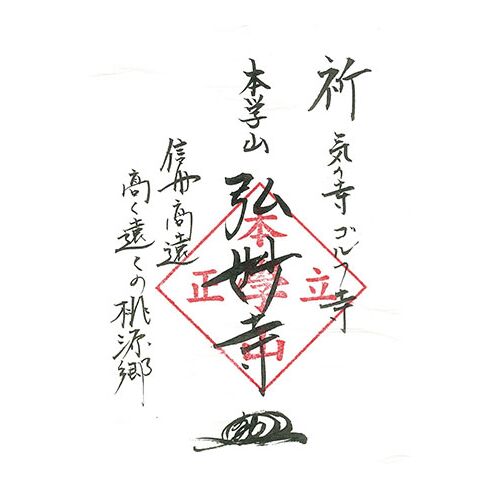 祈
気の寺ゴルフ寺
本学山
弘妙寺
信州高遠
高く遠くの桃源郷
本学山
正立